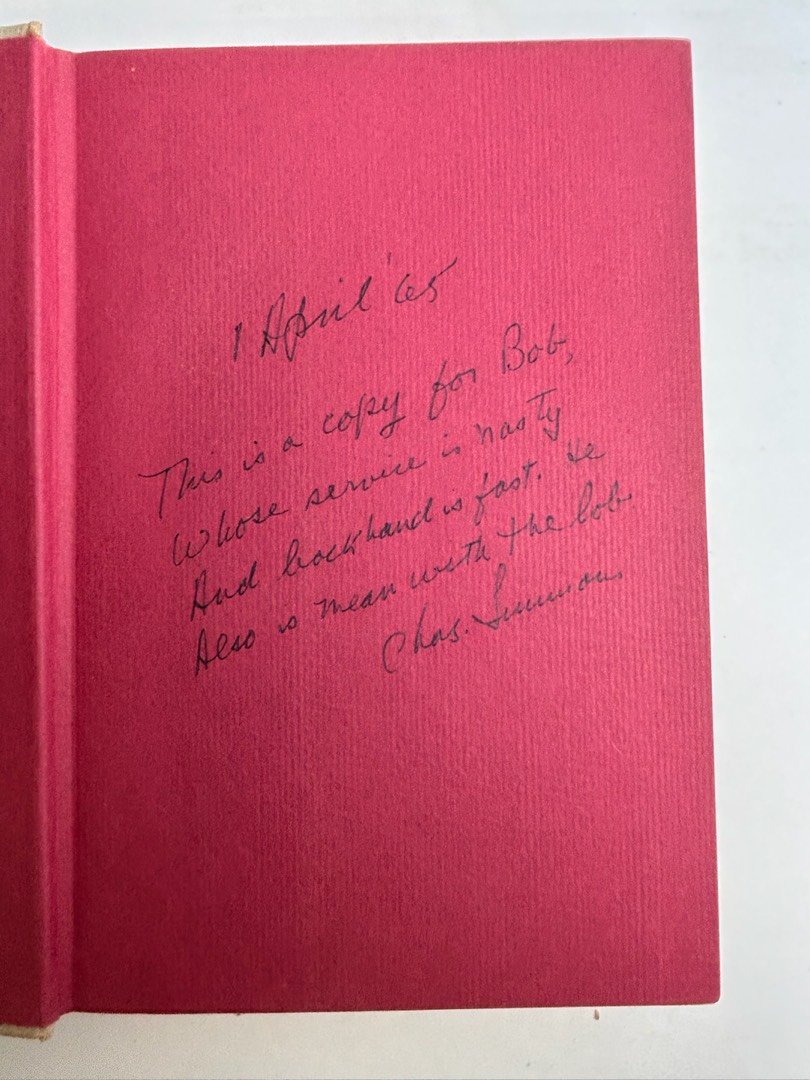 1 April '65
This is a copy for Bob,
Whose service is nasty
And backhand is fast. He
Also is mean with the lob.
Chas. Simmons